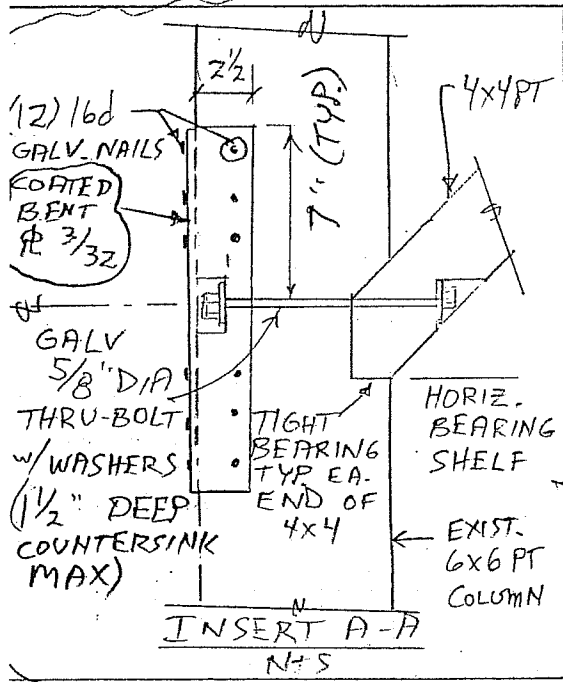 2½
(12) 16d
GALV. NAILS
COATED
BENT
PL 3/32
7" (TYP.)
4x4 PT
GALV
5/8" DIA
THRU-BOLT
w/ WASHERS
(1½" DEEP
COUNTERSINK
MAX)
TIGHT
BEARING
TYP. EA.
END OF
4x4
HORIZ.
BEARING
SHELF
EXIST.
6x6 PT
COLUMN
INSERT A-A
NTS